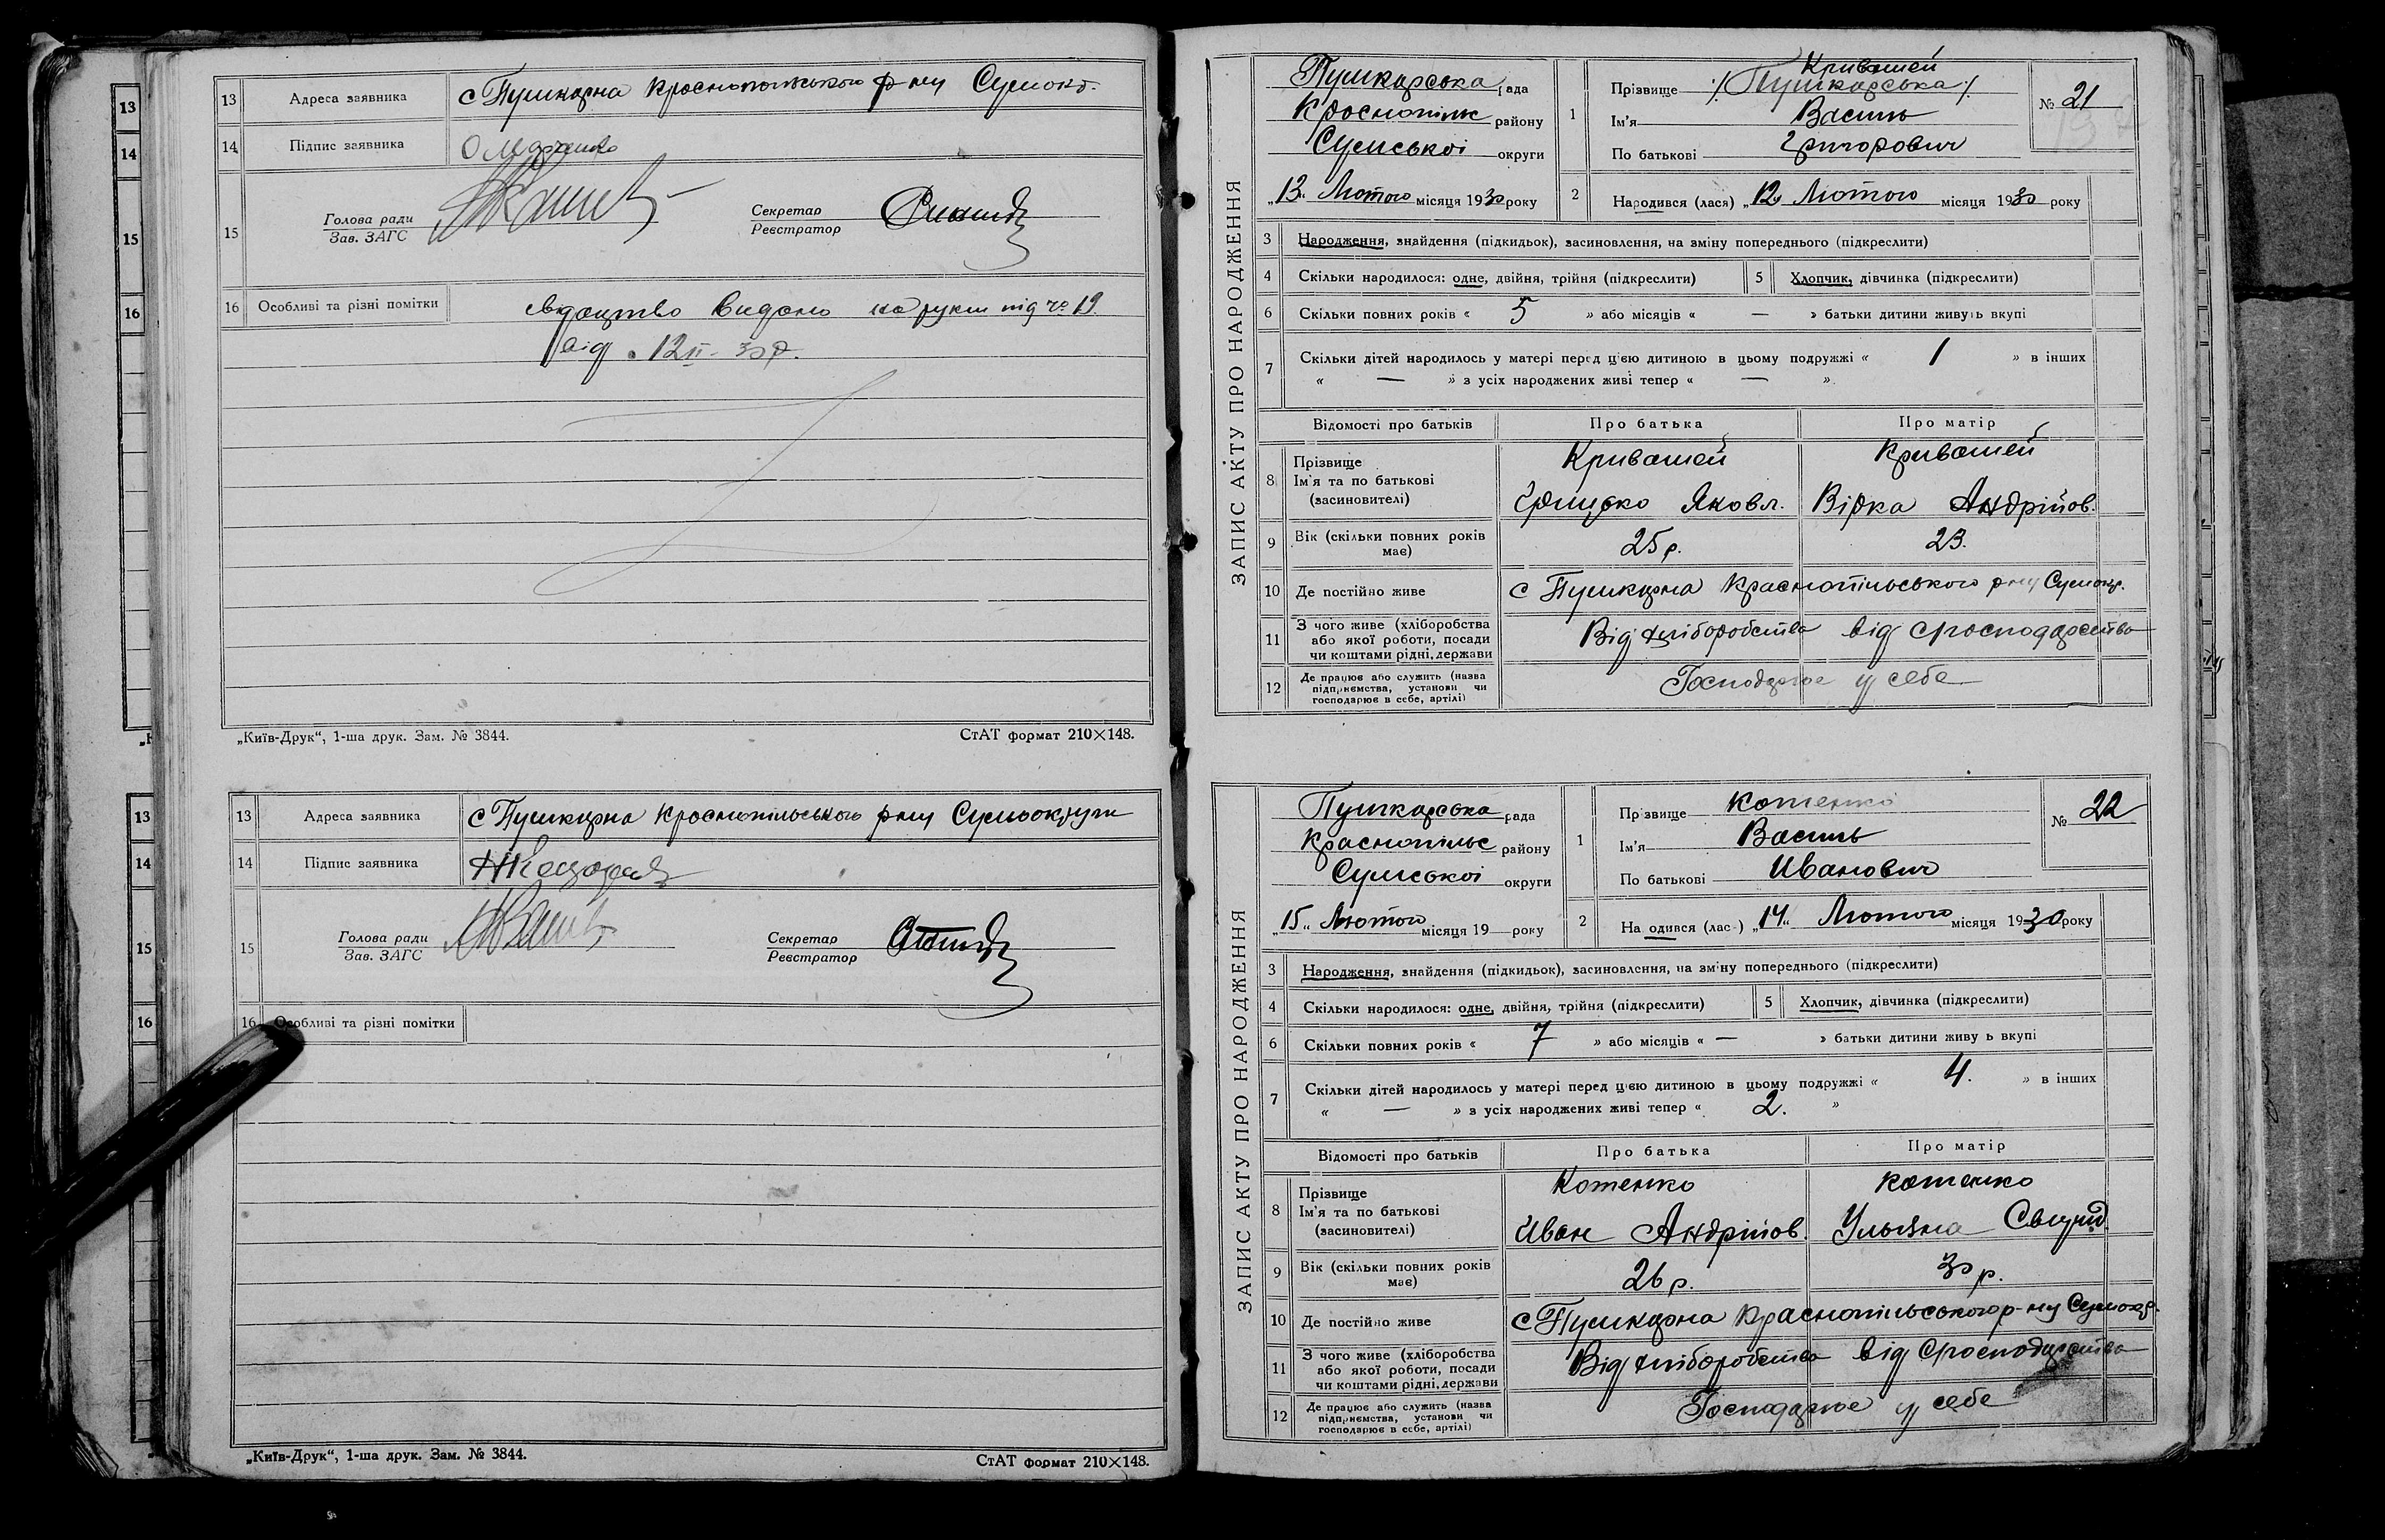 13 Адреса заявника с Пушкарна Краснопольського р ну Сумокр.
14 Підпис заявника
15 Голова ради Зав. ЗАГС Секретар Реєстратор
16 Особливі та різні помітки свідоцтво видано на руки під № 19.
від 12 II - 30 р.
„Київ-Друк“, 1-ша друк. Зам. № 3844. СтАТ формат 210×148.
13 Адреса заявника с Пушкарна Краснопільського р ну Сумокруги
14 Підпис заявника
15 Голова ради Зав. ЗАГС Секретар Реєстратор
16 Особливі та різні помітки
„Київ-Друк“, 1-ша друк. Зам. № 3844. СтАТ формат 210×148.
ЗАПИС АКТУ ПРО НАРОДЖЕННЯ
Пушкарська рада
Краснопільс району
Сумської округи
„13“ Лютого місяця 1930 року
Кривошей
1 Прізвище Пушкарська
Ім'я Василь
По батькові Григорович
№ 21
2 Народився (лася) „12“ Лютого місяця 1930 року
3 Народження, знайдення (підкидьок), засиновлення, на зміну попереднього (підкреслити)
4 Скільки народилося: одне, двійня, трійня (підкреслити) 5 Хлопчик, дівчинка (підкреслити)
6 Скільки повних років « 5 » або місяців « — » батьки дитини живуть вкупі
7 Скільки дітей народилось у матері перед цією дитиною в цьому подружжі « 1 » в інших
« — » з усіх народжених живі тепер « — ».
Відомості про батьків Про батька Про матір
8 Прізвище Кривошей Кривошей
Ім'я та по батькові (засиновителі) Грицько Яковл. Вірка Андрійов.
9 Вік (скільки повних років має) 25 р. 23.
10 Де постійно живе с Пушкарна Краснопільського р ну Сумокр.
11 З чого живе (хліборобства або якої роботи, посади чи коштами рідні, держави Від хліборобства від господарства
12 Де працює або служить (назва підприємства, установи чи господарює в себе, артілі) Господарює у себе
ЗАПИС АКТУ ПРО НАРОДЖЕННЯ
Пушкарська рада
Краснопільс району
Сумської округи
„15“ Лютого місяця 19 року
1 Прізвище Котенко
Ім'я Василь
По батькові Иванович
№ 22
2 Народився (лас-) „14“ Лютого місяця 1930 року
3 Народження, знайдення (підкидьок), засиновлення, на зміну попереднього (підкреслити)
4 Скільки народилося: одне, двійня, трійня (підкреслити) 5 Хлопчик, дівчинка (підкреслити)
6 Скільки повних років « 7 » або місяців « — » батьки дитини живу ь вкупі
7 Скільки дітей народилось у матері перед цією дитиною в цьому подружжі « 4. » в інших
« — » з усіх народжених живі тепер « 2. »
Відомості про батьків Про батька Про матір
8 Прізвище Котенко Котенко
Ім'я та по батькові (засиновителі) Иван Андрійов. Ульяна
9 Вік (скільки повних років має) 26 р. 30 р.
10 Де постійно живе с Пушкарна Краснопільського р-ну Сумокр.
11 З чого живе (хліборобства або якої роботи, посади чи коштами рідні, держави Від хліборобства від господарства
12 Де працює або служить (назва підприємства, установи чи господарює в себе, артілі) Господарює у себе